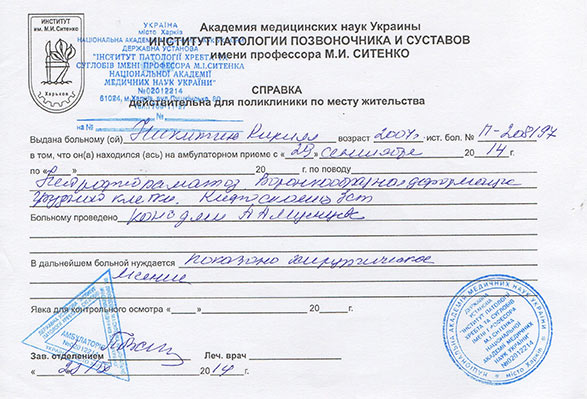 ИНСТИТУТ
им. М.И. Ситенко
Харьков
УКРАЇНА
місто Харків
НАЦІОНАЛЬНА АКАДЕМІЯ
ДЕРЖАВНА УСТАНОВА
"ІНСТИТУТ ПАТОЛОГІЇ ХРЕБТА
СУГЛОБІВ ІМЕНІ ПРОФЕСОРА М.І.СИТЕНКА
НАЦІОНАЛЬНОЇ АКАДЕМІЇ
МЕДИЧНИХ НАУК УКРАЇНИ"
№02012214
61024, м. Харків, вул. Пушкінська, 80
на №
Академия медицинских наук Украины
ИНСТИТУТ ПАТОЛОГИИ ПОЗВОНОЧНИКА И СУСТАВОВ
имени профессора М.И. СИТЕНКО
СПРАВКА
действительна для поликлиники по месту жительства
Выдана больному (ой) Никитин Кирилл возраст 2004г. ист. бол. № П-208197
в том, что он(а) находился (ась) на амбулаторном приеме с «29» сентября 2014 г.
по «» 20 г. по поводу
Воронкообразная деформация
грудной клетки. ст
Больному проведено
В дальнейшем больной нуждается показано хирургическое
лечение
Явка для контрольного осмотра «» 20 г.
АМБУЛАТОР
Зав. отделением Леч. врач
2014 г.
НАЦІОНАЛЬНА АКАДЕМІЯ МЕДИЧНИХ НАУК УКРАЇНИ
ДЕРЖАВНА
УСТАНОВА
ІНСТИТУТ ПАТОЛОГІЇ
ХРЕБТА ТА СУГЛОБІВ
ІМЕНІ ПРОФЕСОРА
М.І.СИТЕНКА
НАЦІОНАЛЬНОЇ
АКАДЕМІЇ МЕДИЧНИХ
НАУК УКРАЇНИ"
№02012214
місто Харків